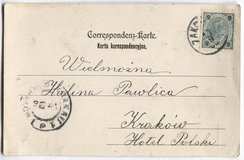 Correspondenz-Karte.
Karta korespondencyjna.
Wielmożna
Halina Pawlica
Kraków
Hotel Polski